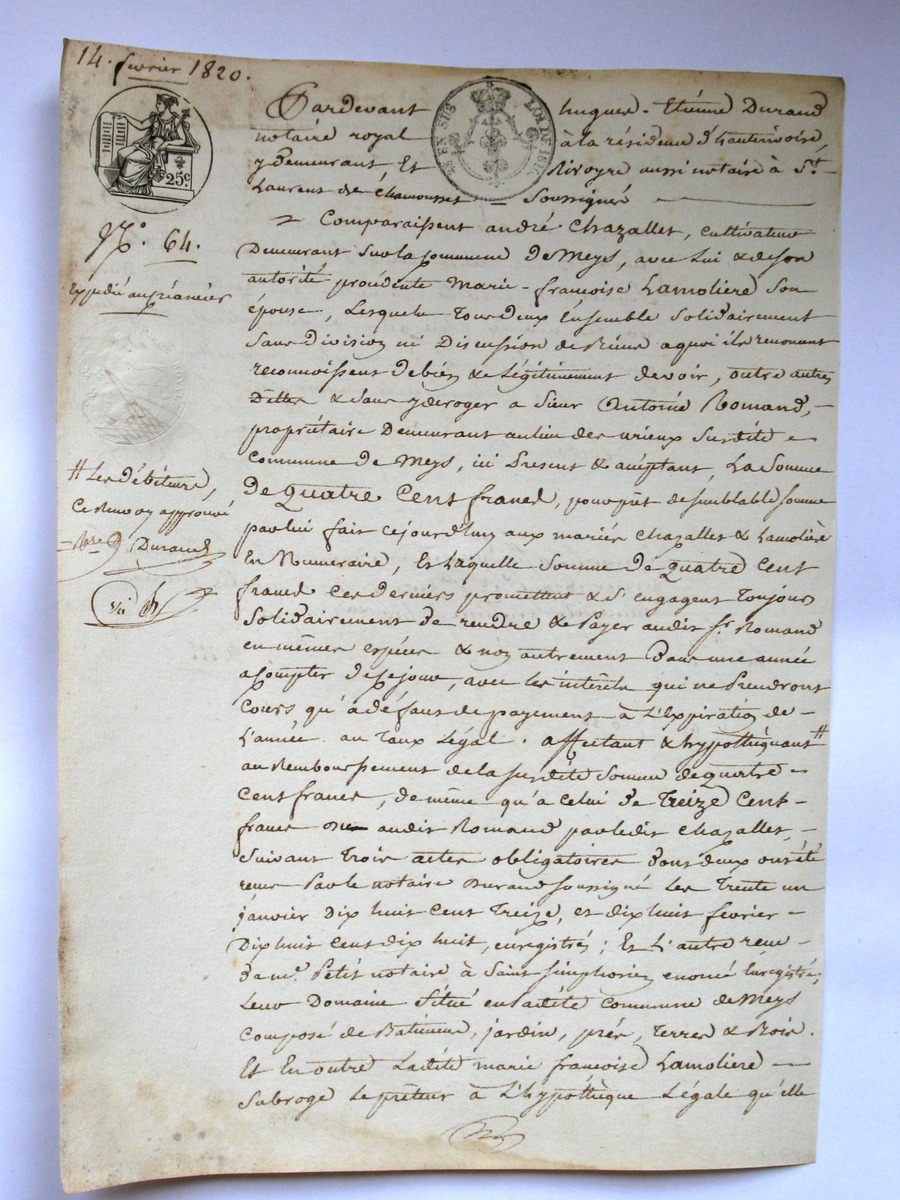 14. fevrier 1820.
Pardevant hugues-Etienne Durand
notaire royal à la résidence d'hauterivoire,
y demeurant, Et Rivoyre aussi notaire à St.
Laurent de Chamousset Soussignés
25c.
Comparaissent andré Chazallet, cultivateur
Demeurant Sur la Commune de Meys, avec Lui & de son
N.º 64.
autorité procédente Marie-françoise Lamolière Son
Expedié au créancier
épouse, Lesquels Tous deux Ensemble Solidairement
Sans division ni Discussion de Biens a quoi ils renoncent
reconnoissent de bien & Légitimement devoir, outre autres
Dettes & Sans y déroger a Sieur Antoine Romand,
propriétaire Demeurant au lieu des Surdité
Commune de Meys, ici Présent & acceptant, La Somme
De Quatre Cent francs, pour prêt de semblable somme
par lui fait cejourd'huy aux mariés Chazallet & Lamolière
En Numeraire, Et Laquelle Somme de Quatre Cent
francs Ces derniers promettent & S'engagent Toujours
Solidairement De rendre & Payer audit Sr. Romand
en mêmes espèces & non autrement Dans une année
a Compter de ce jour, avec les intérêts qui ne Prendront
Cours qu'à défaut de payement à L'Expiration de
L'année au Taux Légal. affectant & hypothéquant #
au Remboursement de la Surdité Somme de Quatre
Cent francs, de même qu'a Celui de Treize Cent
francs audit Romand par ledit Chazallet,
Suivant Trois actes obligatoires dont deux ont été
reçus Par le notaire Durand Soussigné Les Trente un
janvier Dix huit Cent Treize, et dix huit fevrier
Dix huit Cent dix huit, enregistrés; Et L'autre reçu
de me. Petit notaire à Saint Simphorien Enregistré,
Leur Domaine Situé en Ladité Commune de Meys
Composé de Batimens, jardin, prés, Terres & Bois.
Et En outre Ladité marie françoise Lamolière
Subroge Le prêteur à L'hypothèque Légale qu'elle
# Les Débiteurs,
Ce Renvoy approuvé
Durand